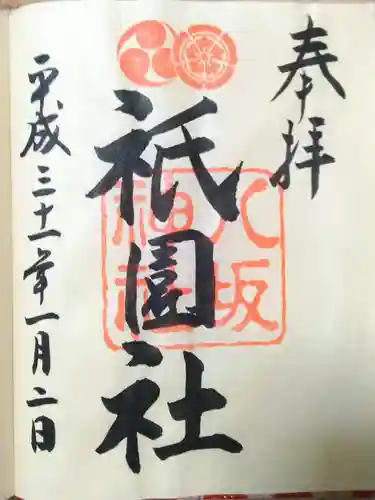 奉拝
祇園社
八坂神社
平成三十一年一月二日